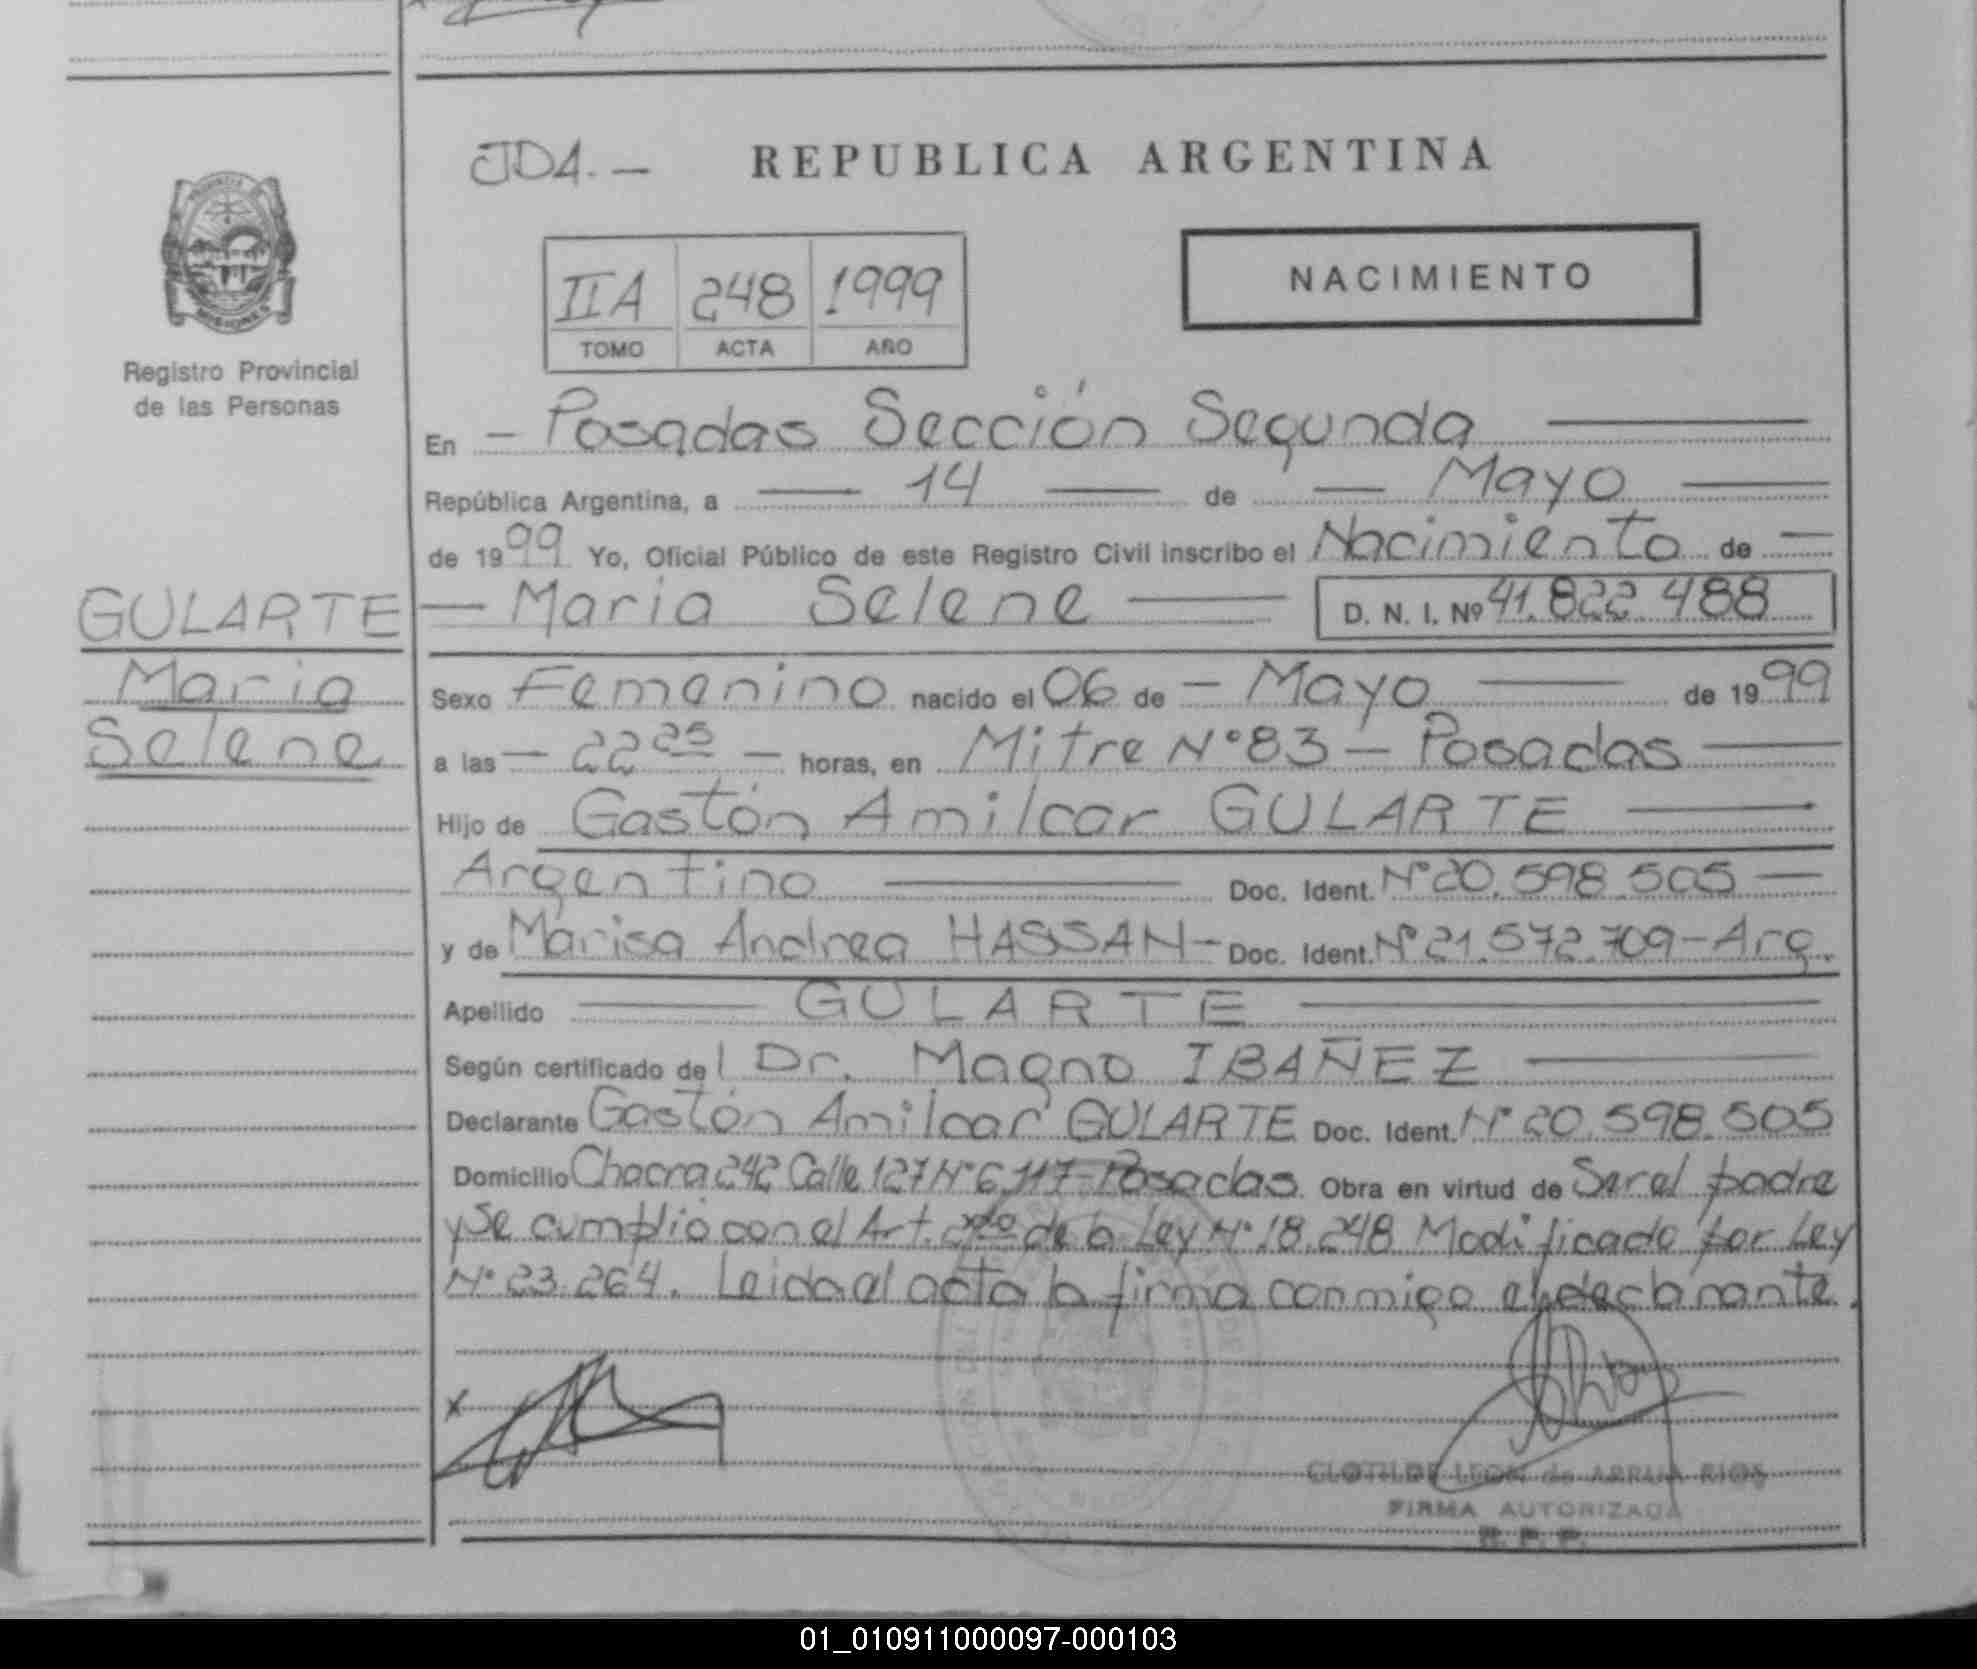 JDA.- REPUBLICA ARGENTINA
PROVINCIA DE
MISIONES
Registro Provincial
de las Personas
IIA 248 1999
TOMO ACTA AÑO
NACIMIENTO
En - Posadas Sección Segunda
República Argentina, a 14 de Mayo
de 1999 Yo, Oficial Público de este Registro Civil inscribo el Nacimiento de
GULARTE
Maria
Selene
Maria Selene D. N. I. Nº 41.822.488
Sexo Femenino nacido el 06 de - Mayo de 1999
a las - 22 25 - horas, en Mitre N°83 - Posadas
Hijo de Gastón Amilcar GULARTE
Argentino Doc. Ident. N°20.598.505
y de Marisa Andrea HASSAN - Doc. Ident. N°21.572.709 - Arg.
Apellido GULARTE
Según certificado del Dr. Magno IBAÑEZ
Declarante Gastón Amilcar GULARTE Doc. Ident. N° 20.598.505
Domicilio Chacra 242 Calle 127 N° 6117 - Posadas. Obra en virtud de Ser el padre
y Se cumplió con el Art. de la Ley N° 18.248 Modificado por Ley
N° 23.264. Leida el acta la firma conmigo el declarante.
x
CLOTILDE LEON de ARRUA RIOS
FIRMA AUTORIZADA
R. P. P.
01_010911000097-000103